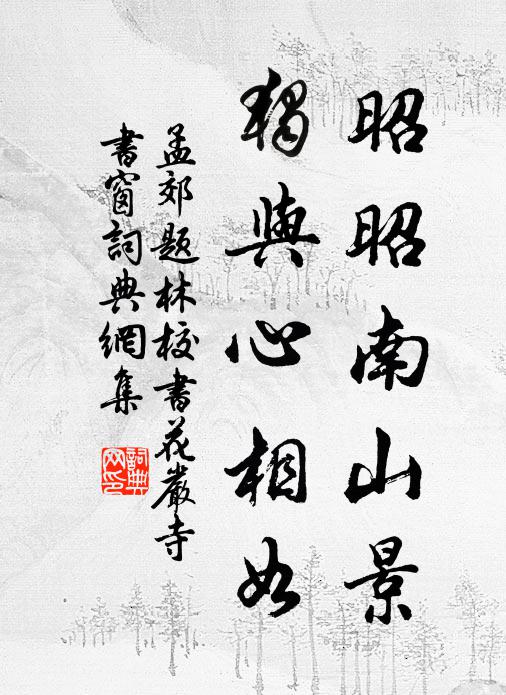 昭昭南山景
獨與心相如
孟郊題林校書花嚴寺
書窗詞典網集
詞典网印